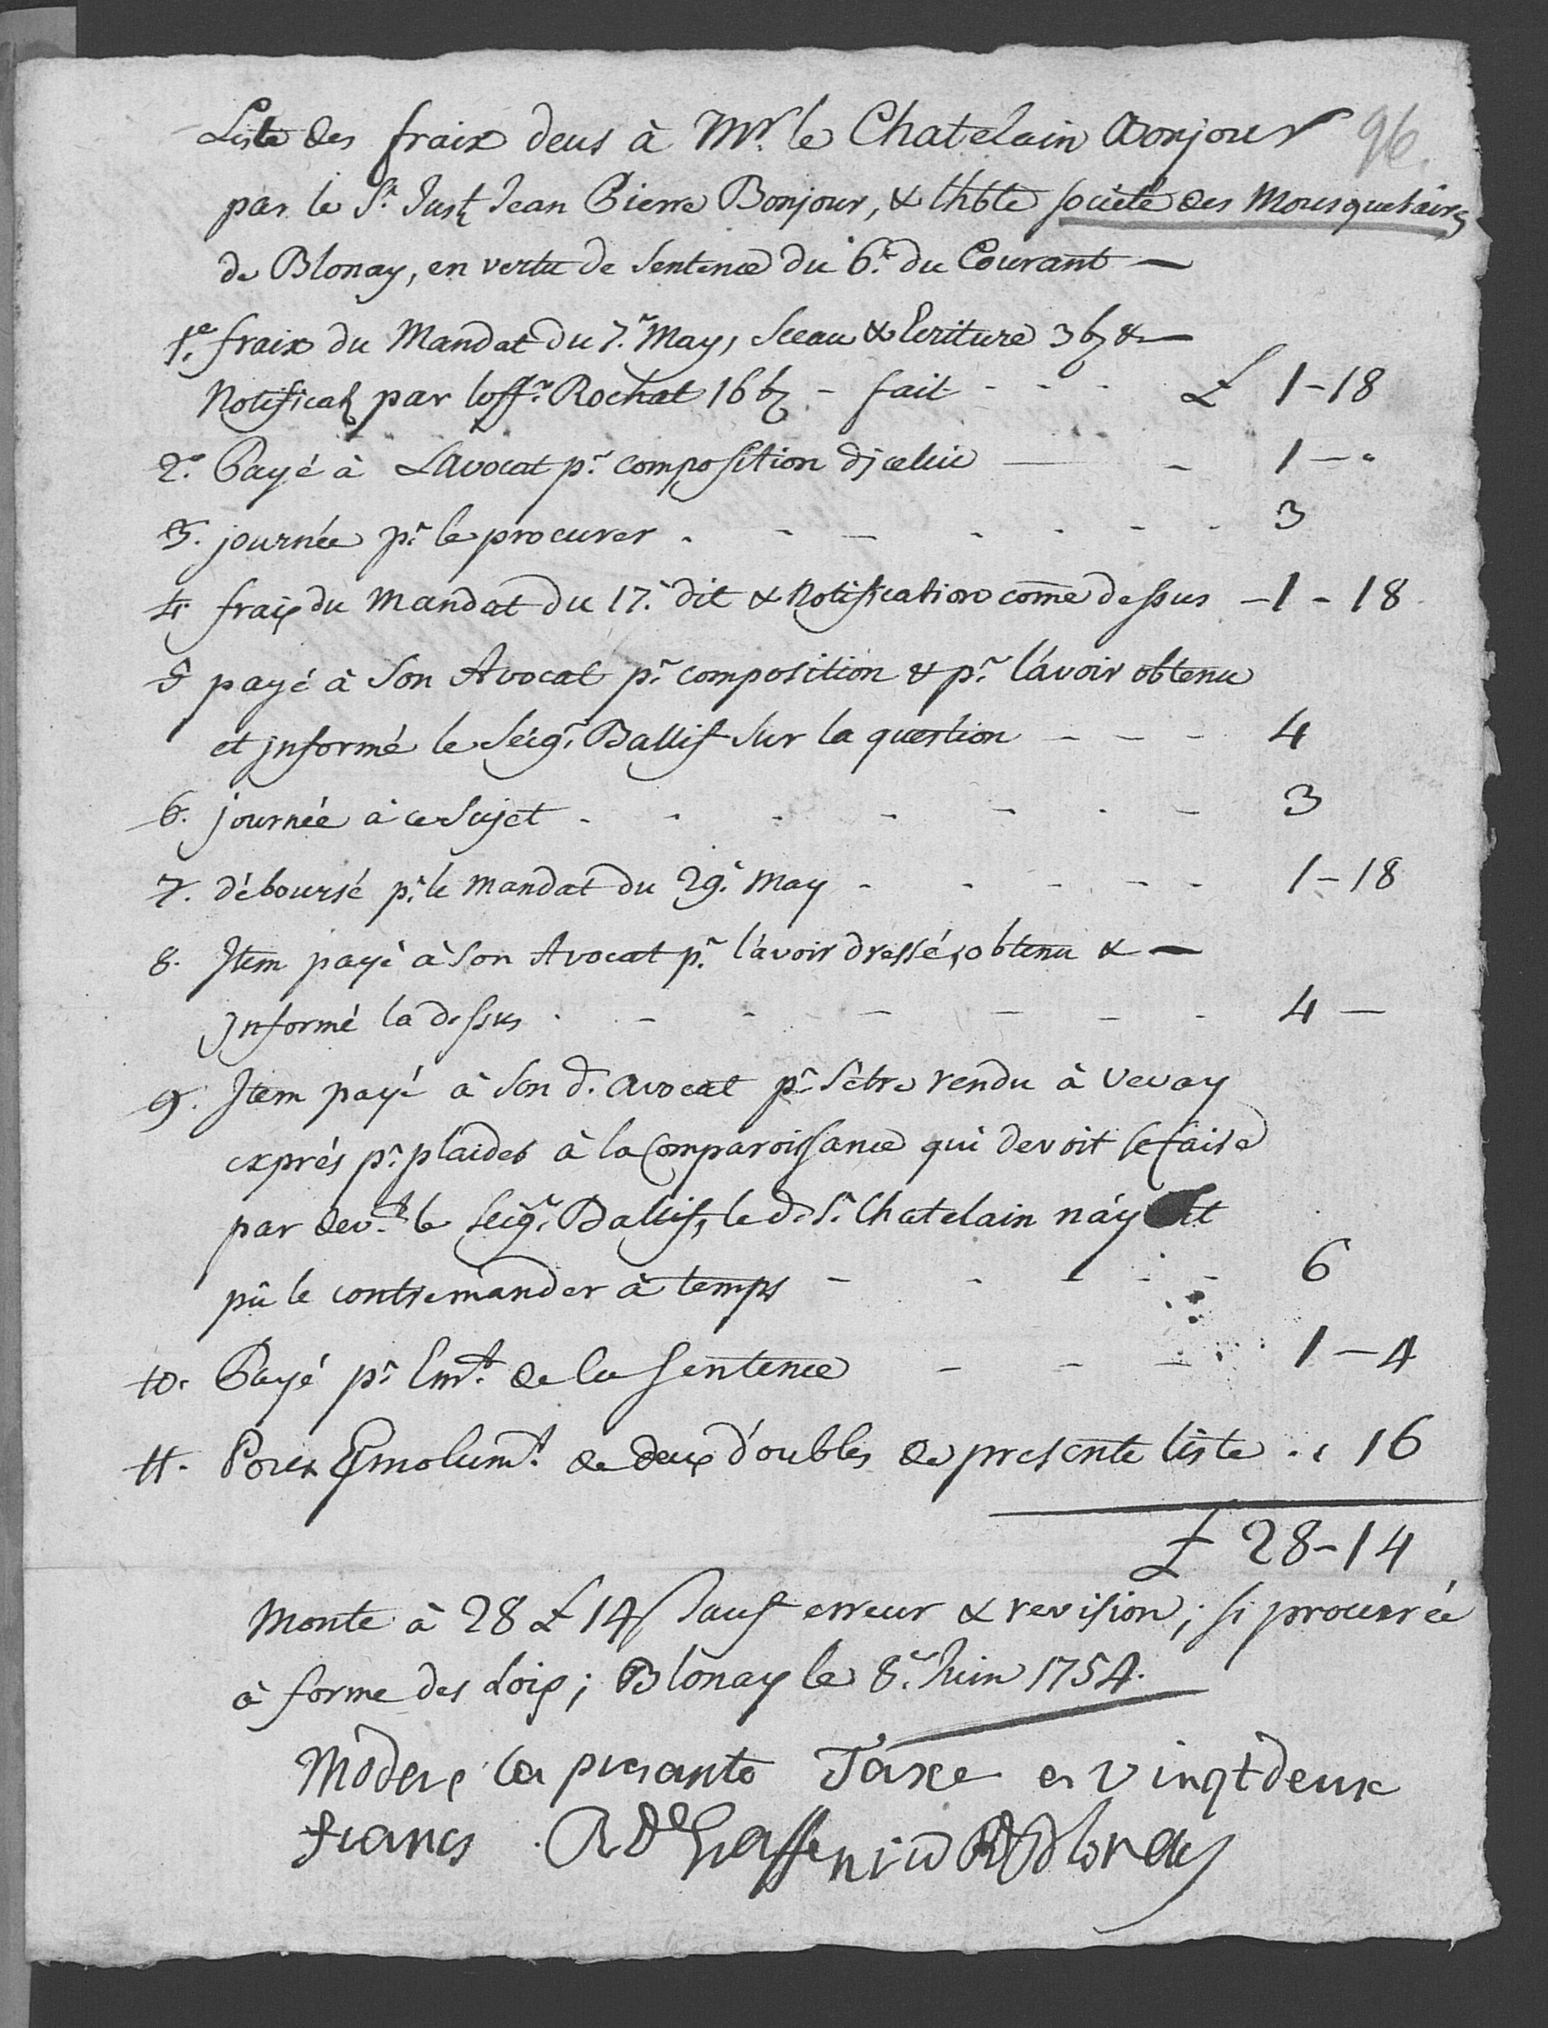 Liste des fraix deus à Mr. le Chatelain Bonjour 96.
par le Sr. Just. Jean Pierre Bonjour, & Lhble société des Mousquetaires
de Blonay, en vertu de Sentence du 6e. du Courant —
1e. fraix du Mandat du 7e. May, Sceau & Ecriture 3 bz & —
Notificaõ par loffr. Rochat 16 bz. – fait - - - £ 1-18
2e. Payé à LAvocat pr. composition djcelui — - 1 — "
3. journée pr. le procurer . - - - - - - 3
4. fraix du Mandat du 17e. dit & Notification come dessus - 1 - 18
5 payé à Son Avocat pr. composition & pr. l'avoir obtenu
et jnformé le Seigr. Ballif sur la question - - - 4
6. journée à ce Sujet . . . - - . - 3
7. déboursé pr. le Mandat du 29e. May - - - - - 1-18
8. Jtem payé à Son Avocat pr. l'avoir dressé, obtenu & —
jnformé la dessus . - - - - - - 4 —
9. Jtem payé à Son d. avocat pr. sêtre rendu à Vevay
exprés pr. plaider à la Comparoissance qui devoit se faire
par devt. le Seigr. Ballif, le d. Sr. Chatelain náy
pû le contremander à temps - - - - - 6
10. Payé pr. Emt. de la Sentence - - - 1 — 4
11. Pour Emolumt. de deux doubles de presente liste . . 16
£ 28-14
Monte à 28 £ 14 s sauf erreur & revision; si procurée
à forme des Loix; Blonay le 8e. Juin 1754.
Modere la presante Taxe en vingtdeux
francs. R De Graffenried De blonay